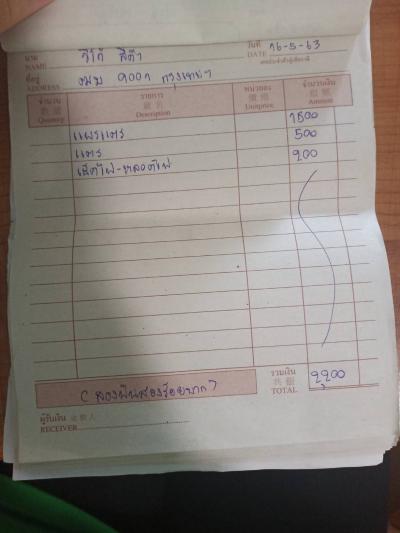 นาม NAME วีโก้ สีดำ วันที่ DATE 16-5-63
เลขประจำตัวผู้เสียภาษี
ที่อยู่ ADDRESS กรุงเทพฯ
จำนวน 數量 Quantity รายการ 貨名 Description หน่วยละ 單價 Unitprice จำนวนเงิน 銀額 Amount
แผงแตร 1500
แตร 500
เช็คไฟ-หลอดไฟ 200
(สองพันสองร้อยบาท) รวมเงิน 共銀 TOTAL 2,200
ผู้รับเงิน 收款人
RECEIVER